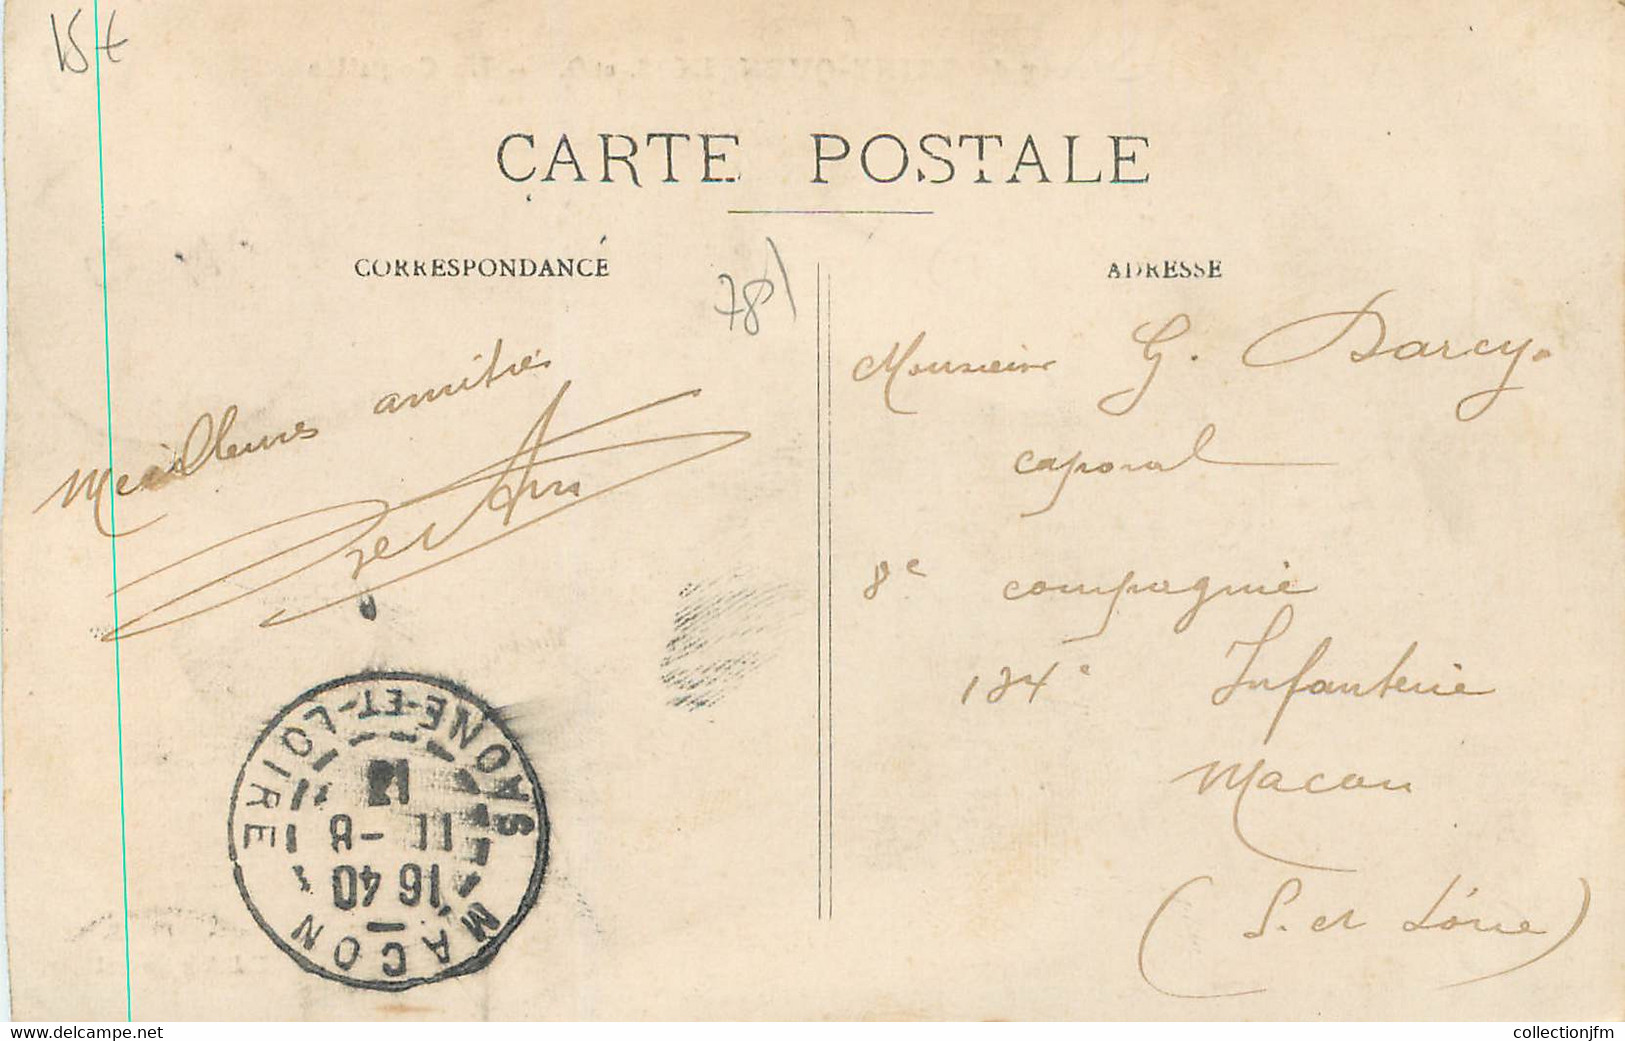 15€
CARTE POSTALE
CORRESPONDANCE
ADRESSE
78
Meilleures amitiés
Monsieur G. Darcy.
caporal
8e compagnie
134e Infanterie
Macon
(S. et Loire)
MACON
16 40
11 -8
SAONE-ET-LOIRE
www.delcampe.net
collectionjfm